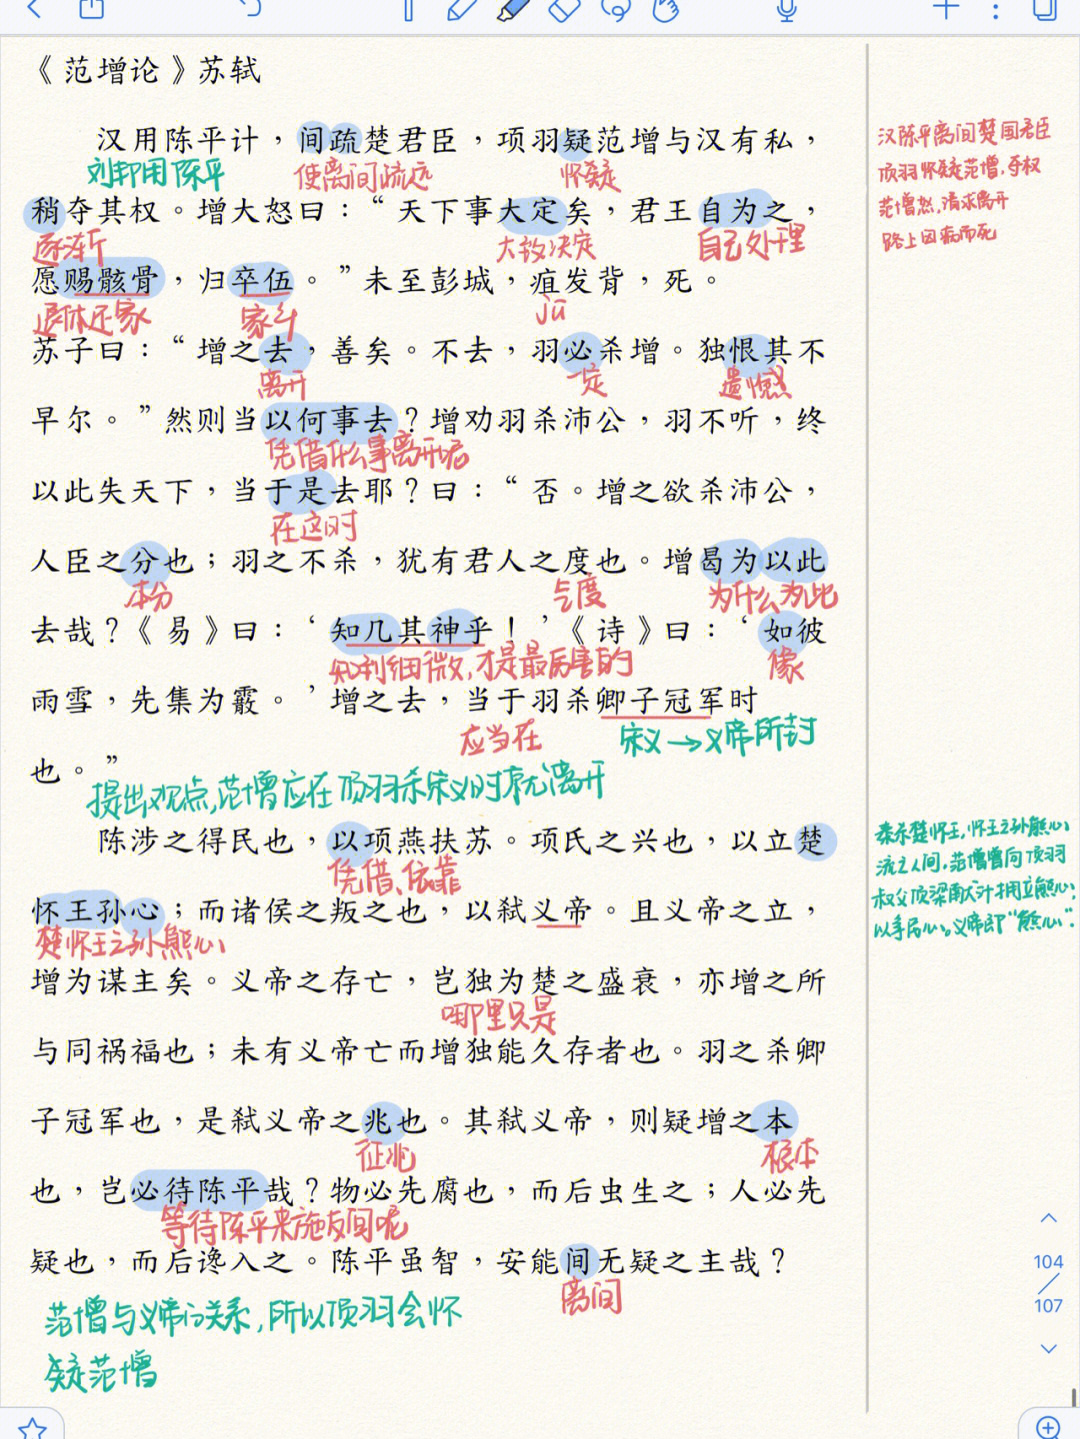 《范增论》苏轼
汉用陈平计，间疏楚君臣，项羽疑范增与汉有私，
刘邦用陈平 使离间疏远 怀疑
稍夺其权。增大怒曰：“天下事大定矣，君王自为之，
逐渐 大致决定 自己处理
愿赐骸骨，归卒伍。”未至彭城，疽发背，死。
退休还家 家乡 jū
苏子曰：“增之去，善矣。不去，羽必杀增。独恨其不
离开 一定 遗憾
早尔。”然则当以何事去？增劝羽杀沛公，羽不听，终
凭借什么事离开呢
以此失天下，当于是去耶？曰：“否。增之欲杀沛公，
在这时
人臣之分也；羽之不杀，犹有君人之度也。增曷为以此
本分 气度 为什么为此
去哉？《易》曰：‘知几其神乎！’《诗》曰：‘如彼
知利细微，才是最厉害的 像
雨雪，先集为霰。’增之去，当于羽杀卿子冠军时
应当在 宋义→义帝所封
也。”
提出观点，范增应在项羽杀宋义时就离开
陈涉之得民也，以项燕扶苏。项氏之兴也，以立楚
凭借、依靠
怀王孙心；而诸侯之叛之也，以弑义帝。且义帝之立，
楚怀王之孙熊心
增为谋主矣。义帝之存亡，岂独为楚之盛衰，亦增之所
哪里只是
与同祸福也；未有义帝亡而增独能久存者也。羽之杀卿
子冠军也，是弑义帝之兆也。其弑义帝，则疑增之本
征兆 根本
也，岂必待陈平哉？物必先腐也，而后虫生之；人必先
等待陈平来施反间呢
疑也，而后谗入之。陈平虽智，安能间无疑之主哉？
离间
范增与义帝的关系，所以项羽会怀
疑范增
汉陈平离间楚国君臣
项羽怀疑范增，夺权
范增怒，请求离开
路上因病而死
秦杀楚怀王，怀王之孙熊心
流之人间，范增曾向项羽
叔父项梁献计拥立熊心
以争民心。义帝即“熊心”.
104
107